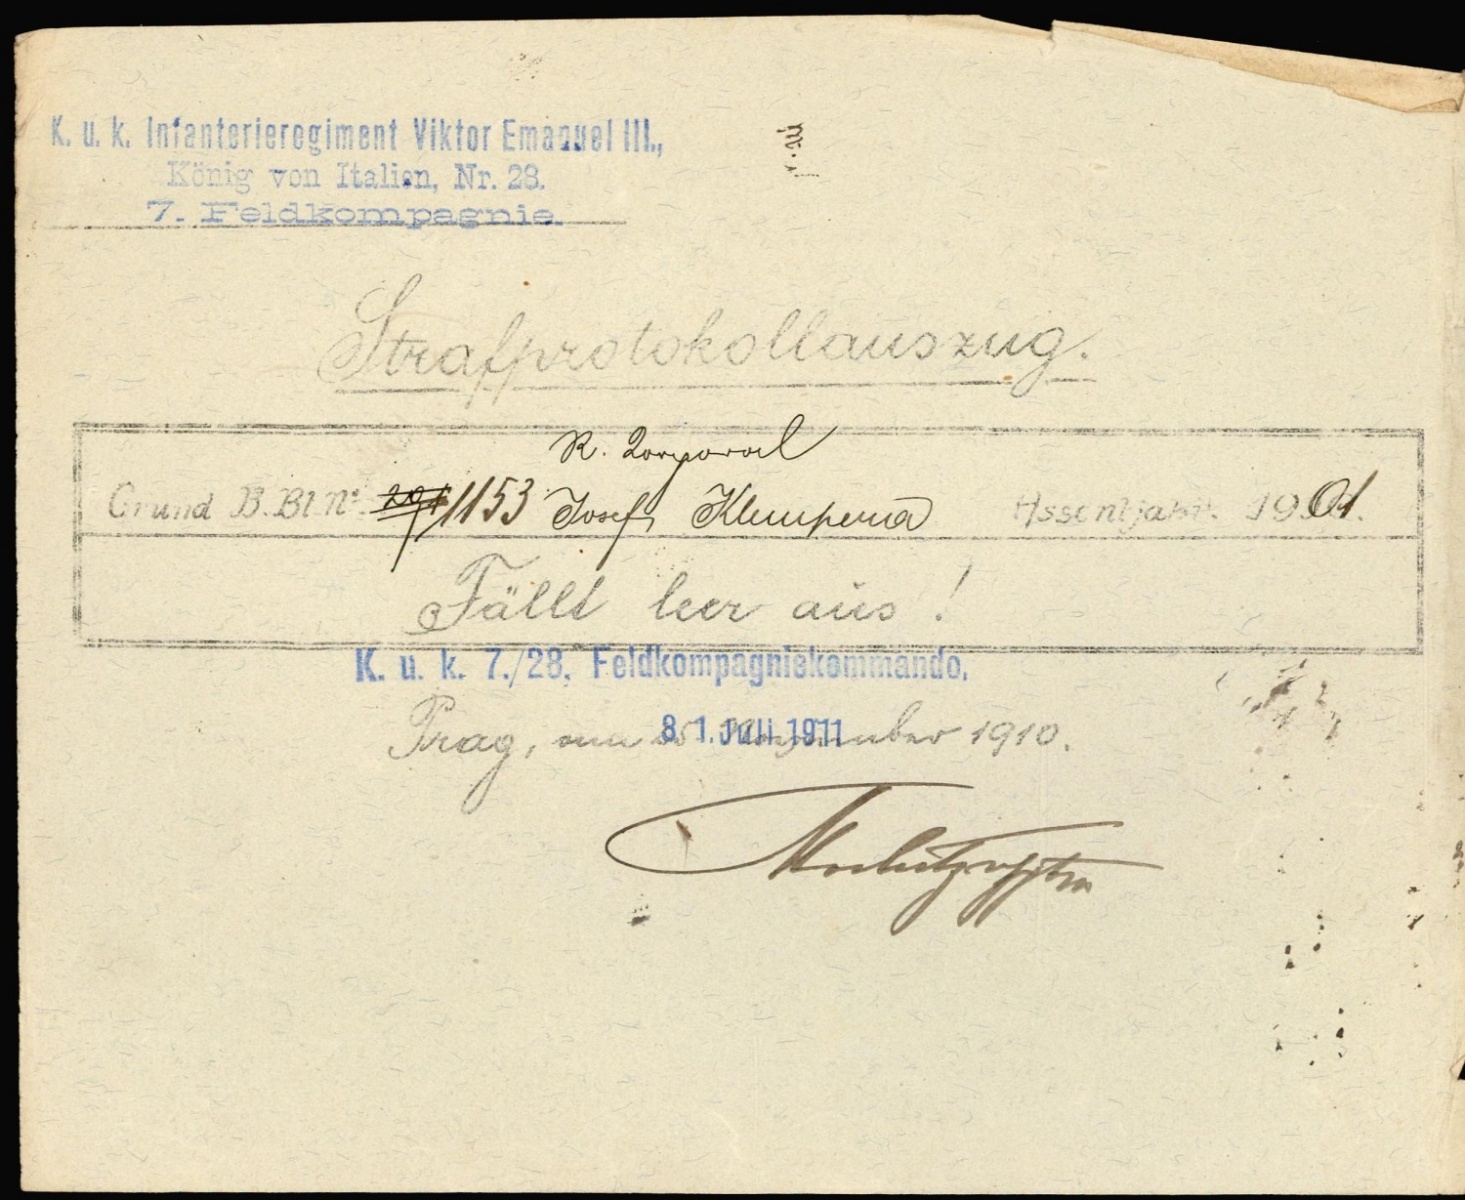 K. u. k. Infanterieregiment Viktor Emanuel III.,
König von Italien, Nr. 28.
7. Feldkompagnie
Strafprotokollauszug.
R. Korporal
Grund B. Bl. Nr. 1153 Josef Klempera Assentjahr. 1901.
Fällt leer aus!
K. u. k. 7./28. Feldkompagniekommando.
Prag, am 31. Juli 1911 November 1910.